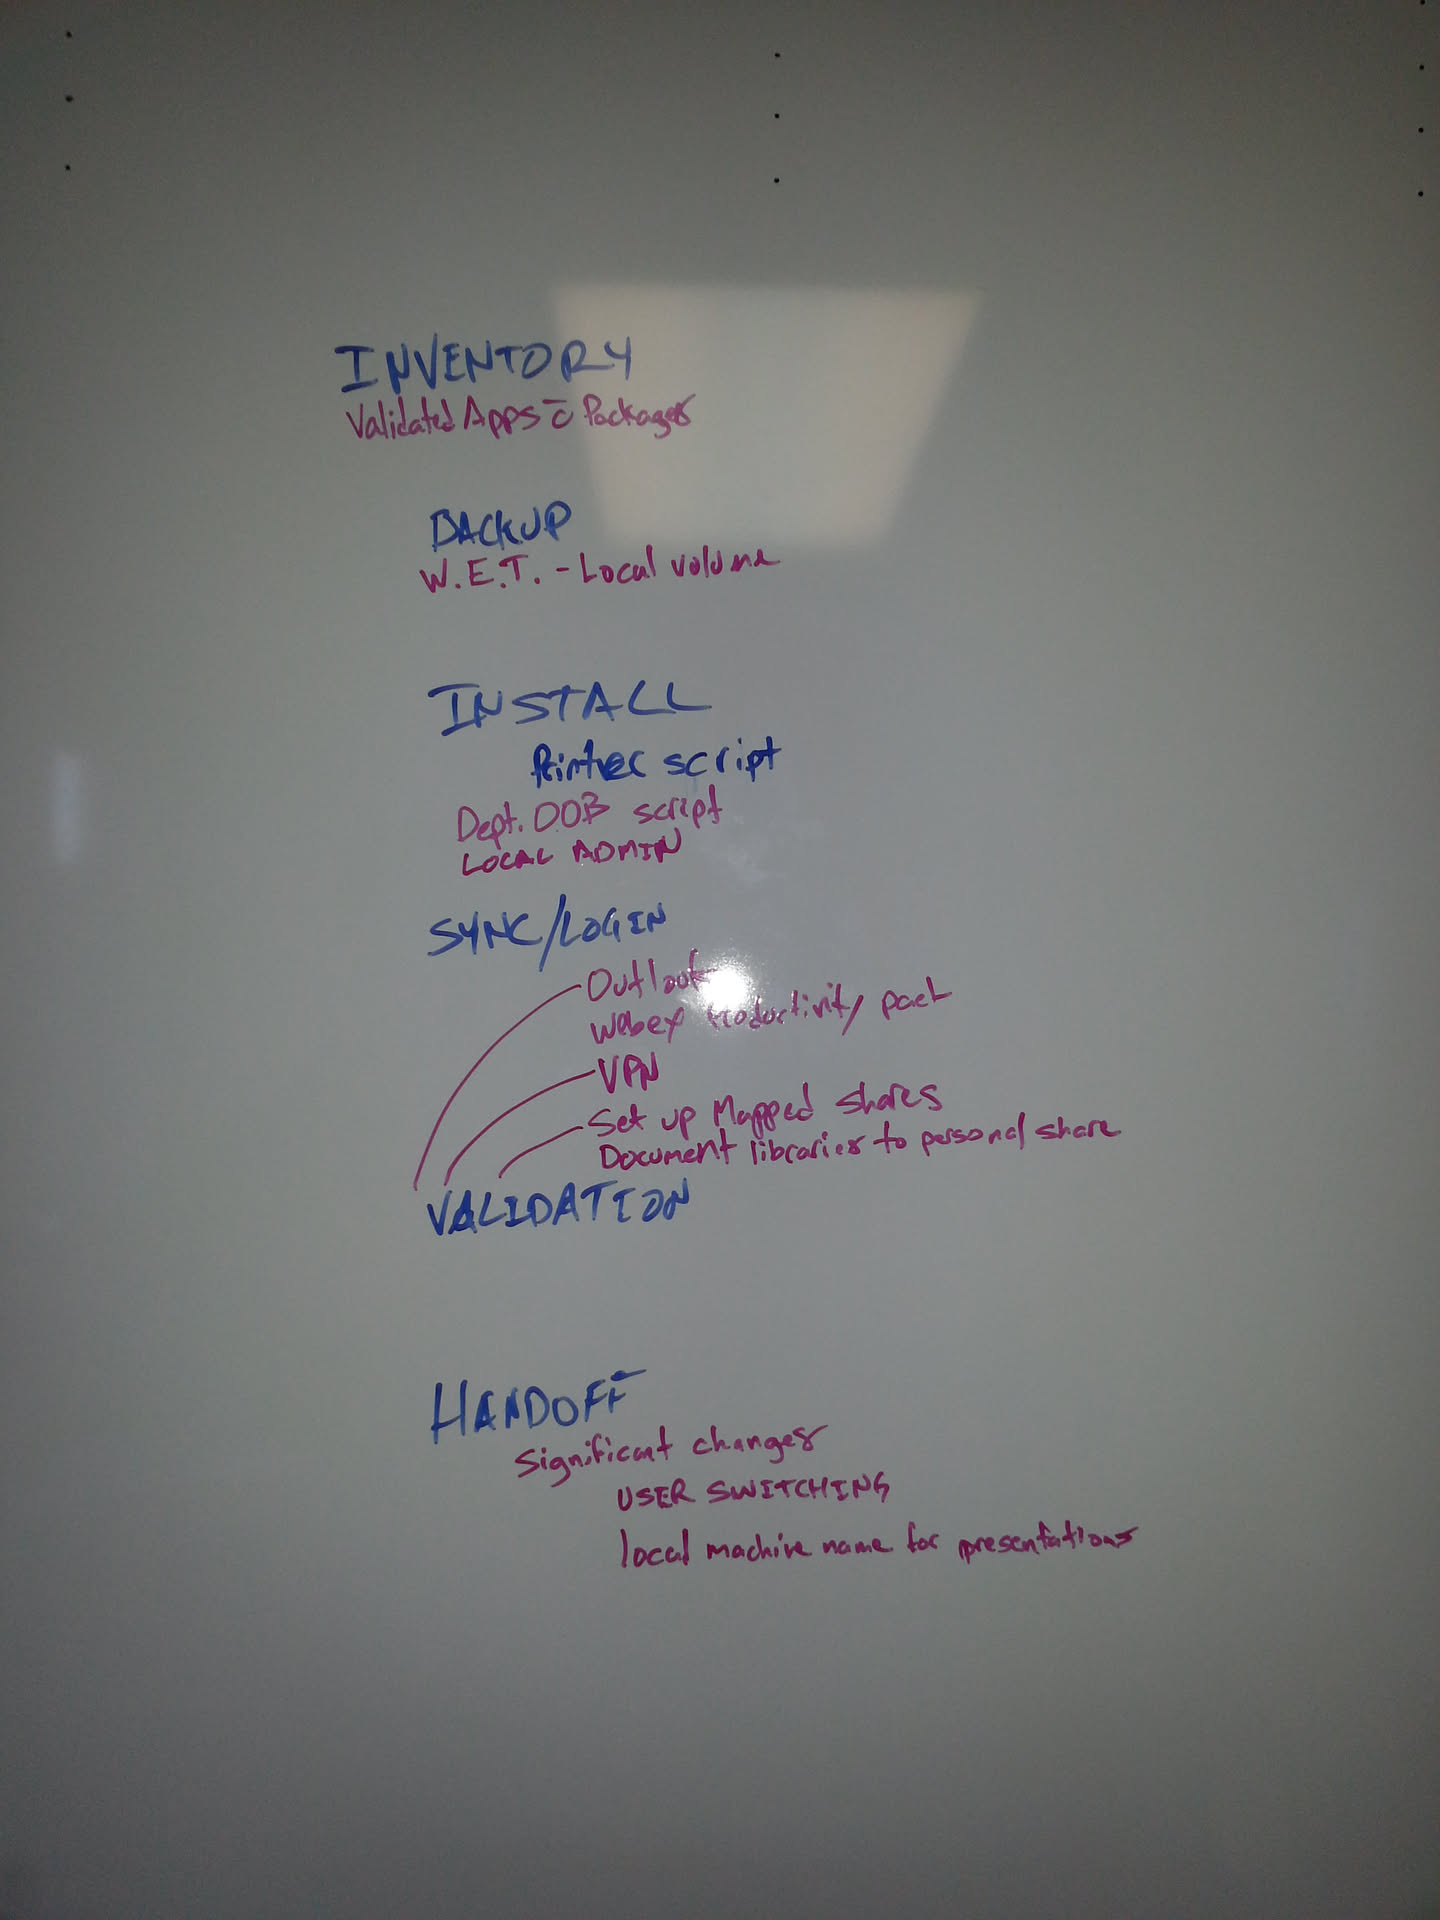 INVENTORY
Validated Apps c̄ Packages
BACKUP
W.E.T. - Local volume
INSTALL
Printer script
Dept. OOB script
LOCAL ADMIN
SYNC/LOGIN
Outlook
Webex Productivity pack
VPN
Set up Mapped shares
Document libraries to personal share
VALIDATION
HANDOFF
Significant changes
USER SWITCHING
local machine name for presentations